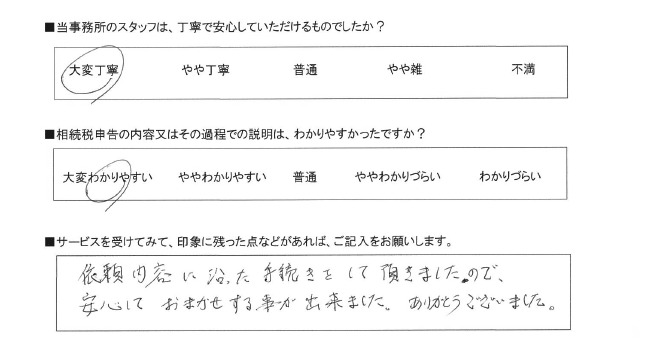 ■当事務所のスタッフは、丁寧で安心していただけるものでしたか？
大変丁寧 やや丁寧 普通 やや雑 不満
■相続税申告の内容又はその過程での説明は、わかりやすかったですか？
大変わかりやすい ややわかりやすい 普通 ややわかりづらい わかりづらい
■サービスを受けてみて、印象に残った点などがあれば、ご記入をお願いします。
依頼内容に沿った手続きをして頂きましたので、
安心して おまかせする事が出来ました。ありがとうございました。